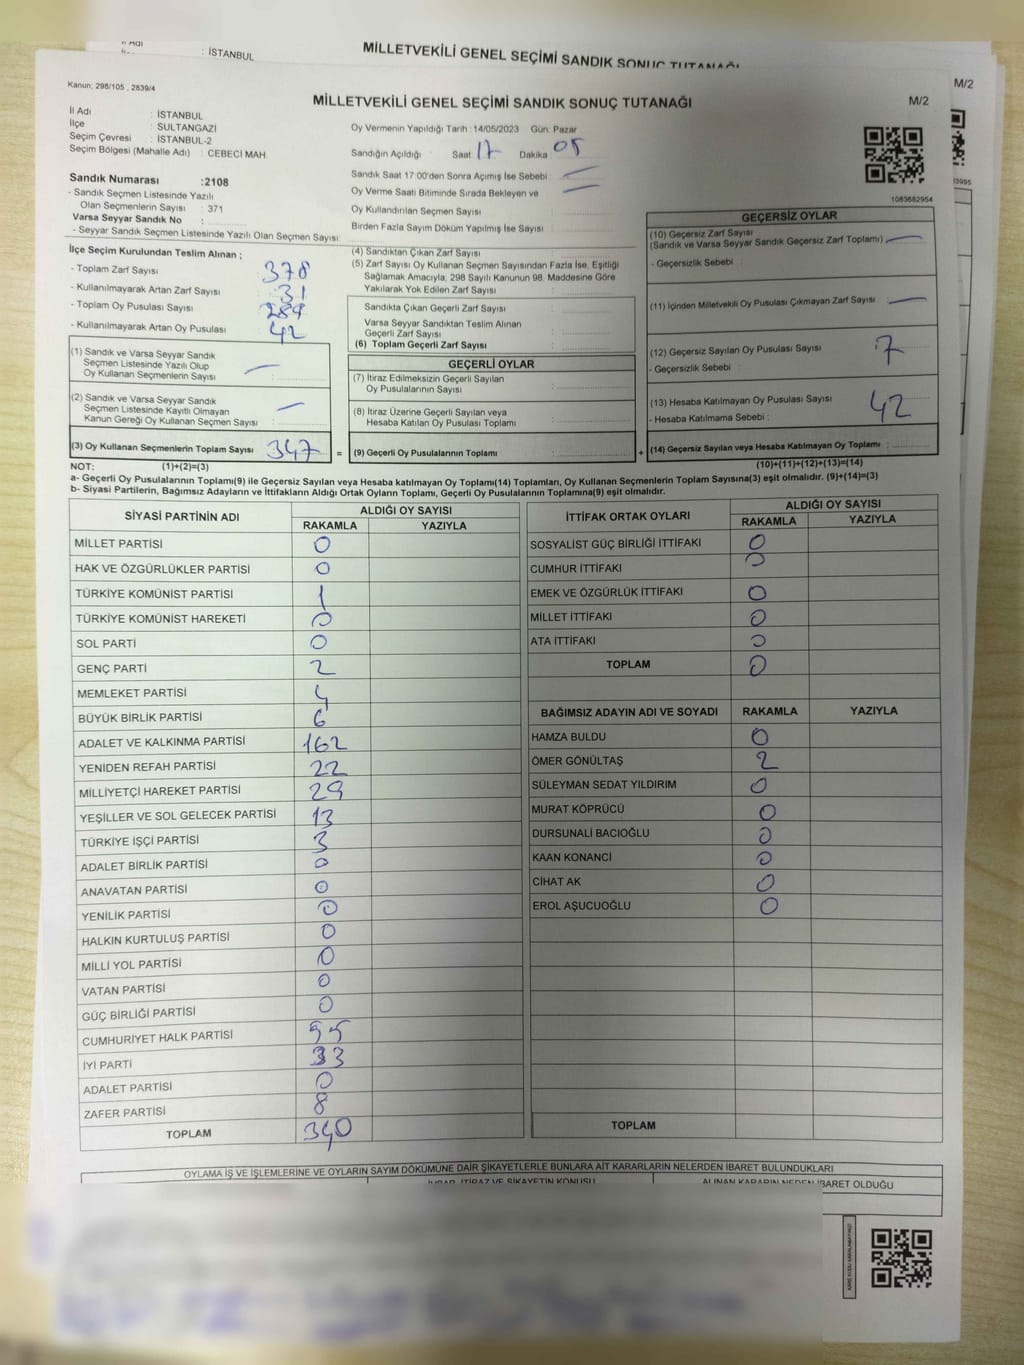 İl Adı : İSTANBUL
MİLLETVEKİLİ GENEL SEÇİMİ SANDIK SONUÇ TUTANAĞI
M/2
Kanun: 298/105 , 2839/4
MİLLETVEKİLİ GENEL SEÇİMİ SANDIK SONUÇ TUTANAĞI
M/2
İl Adı : İSTANBUL
İlçe : SULTANGAZİ
Seçim Çevresi : İSTANBUL-2
Seçim Bölgesi (Mahalle Adı) : CEBECİ MAH.
Oy Vermenin Yapıldığı Tarih :14/05/2023 Gün: Pazar
Sandığın Açıldığı Saat : 17 Dakika : 05
Sandık Saat 17:00'den Sonra Açımış İse Sebebi :
Oy Verme Saati Bitiminde Sırada Bekleyen ve
Oy Kullandırılan Seçmen Sayısı :
Birden Fazla Sayım Döküm Yapılmış İse Sayısı :
1083682954
Sandık Numarası :2108
- Sandık Seçmen Listesinde Yazılı
Olan Seçmenlerin Sayısı : 371
Varsa Seyyar Sandık No :
- Seyyar Sandık Seçmen Listesinde Yazılı Olan Seçmen Sayısı:
İlçe Seçim Kurulundan Teslim Alınan ;
- Toplam Zarf Sayısı : 378
- Kullanılmayarak Artan Zarf Sayısı : 31
- Toplam Oy Pusulası Sayısı : 289
- Kullanılmayarak Artan Oy Pusulası : 42
(1) Sandık ve Varsa Seyyar Sandık
Seçmen Listesinde Yazılı Olup
Oy Kullanan Seçmenlerin Sayısı :
(2) Sandık ve Varsa Seyyar Sandık
Seçmen Listesinde Kayıtlı Olmayan
Kanun Gereği Oy Kullanan Seçmen Sayısı :
(3) Oy Kullanan Seçmenlerin Toplam Sayısı : 347
(4) Sandıktan Çıkan Zarf Sayısı :
(5) Zarf Sayısı Oy Kullanan Seçmen Sayısından Fazla İse, Eşitliği
Sağlamak Amacıyla; 298 Sayılı Kanunun 98. Maddesine Göre
Yakılarak Yok Edilen Zarf Sayısı :
Sandıkta Çıkan Geçerli Zarf Sayısı :
Varsa Seyyar Sandıktan Teslim Alınan
Geçerli Zarf Sayısı :
(6) Toplam Geçerli Zarf Sayısı :
GEÇERLİ OYLAR
(7) İtiraz Edilmeksizin Geçerli Sayılan
Oy Pusulalarının Sayısı :
(8) İtiraz Üzerine Geçerli Sayılan veya
Hesaba Katılan Oy Pusulası Toplamı :
= (9) Geçerli Oy Pusulalarının Toplamı :
GEÇERSİZ OYLAR
(10) Geçersiz Zarf Sayısı
(Sandık ve Varsa Seyyar Sandık Geçersiz Zarf Toplamı) :
- Geçersizlik Sebebi :
(11) İçinden Milletvekili Oy Pusulası Çıkmayan Zarf Sayısı :
(12) Geçersiz Sayılan Oy Pusulası Sayısı : 7
- Geçersizlik Sebebi :
(13) Hesaba Katılmayan Oy Pusulası Sayısı : 42
- Hesaba Katılmama Sebebi :
+ (14) Geçersiz Sayılan veya Hesaba Katılmayan Oy Toplamı :
NOT: (1)+(2)=(3)
(10)+(11)+(12)+(13)=(14)
a- Geçerli Oy Pusulalarının Toplamı(9) ile Geçersiz Sayılan veya Hesaba katılmayan Oy Toplamı(14) Toplamları, Oy Kullanan Seçmenlerin Toplam Sayısına(3) eşit olmalıdır. (9)+(14)=(3)
b- Siyasi Partilerin, Bağımsız Adayların ve İttifakların Aldığı Ortak Oyların Toplamı, Geçerli Oy Pusulalarının Toplamına(9) eşit olmalıdır.
SİYASİ PARTİNİN ADI ALDIĞI OY SAYISI
RAKAMLA YAZIYLA
MİLLET PARTİSİ 0
HAK VE ÖZGÜRLÜKLER PARTİSİ 0
TÜRKİYE KOMÜNİST PARTİSİ 1
TÜRKİYE KOMÜNİST HAREKETİ 0
SOL PARTİ 0
GENÇ PARTİ 2
MEMLEKET PARTİSİ 4
BÜYÜK BİRLİK PARTİSİ 6
ADALET VE KALKINMA PARTİSİ 162
YENİDEN REFAH PARTİSİ 22
MİLLİYETÇİ HAREKET PARTİSİ 29
YEŞİLLER VE SOL GELECEK PARTİSİ 13
TÜRKİYE İŞÇİ PARTİSİ 3
ADALET BİRLİK PARTİSİ 0
ANAVATAN PARTİSİ 0
YENİLİK PARTİSİ 0
HALKIN KURTULUŞ PARTİSİ 0
MİLLİ YOL PARTİSİ 0
VATAN PARTİSİ 0
GÜÇ BİRLİĞİ PARTİSİ 0
CUMHURİYET HALK PARTİSİ 55
İYİ PARTİ 33
ADALET PARTİSİ 0
ZAFER PARTİSİ 8
TOPLAM 340
İTTİFAK ORTAK OYLARI ALDIĞI OY SAYISI
RAKAMLA YAZIYLA
SOSYALİST GÜÇ BİRLİĞİ İTTİFAKI 0
CUMHUR İTTİFAKI 0
EMEK VE ÖZGÜRLÜK İTTİFAKI 0
MİLLET İTTİFAKI 0
ATA İTTİFAKI 0
TOPLAM 0
BAĞIMSIZ ADAYIN ADI VE SOYADI RAKAMLA YAZIYLA
HAMZA BULDU 0
ÖMER GÖNÜLTAŞ 2
SÜLEYMAN SEDAT YILDIRIM 0
MURAT KÖPRÜCÜ 0
DURSUNALİ BACIOĞLU 0
KAAN KONANCİ 0
CİHAT AK 0
EROL AŞUCUOĞLU 0
TOPLAM
OYLAMA İŞ VE İŞLEMLERİNE VE OYLARIN SAYIM DÖKÜMÜNE DAİR ŞİKAYETLERLE BUNLARA AİT KARARLARIN NELERDEN İBARET BULUNDUKLARI
İTİRAZ VE ŞİKAYETİN KONUSU
ALINAN KARARIN NEDEN İBARET OLDUĞU